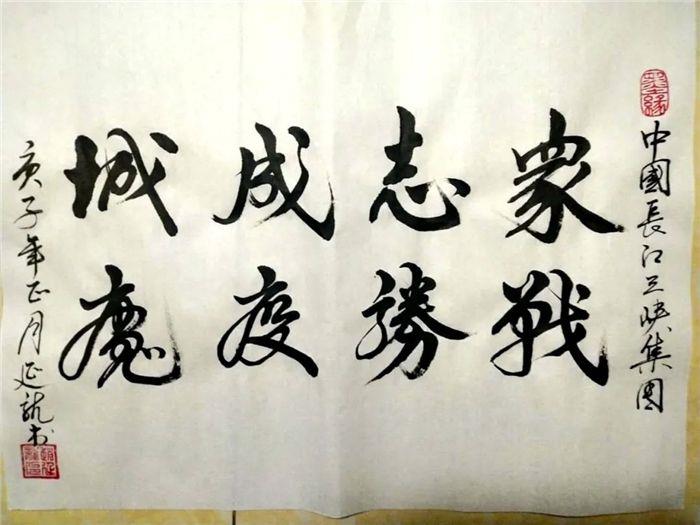 中國長江三峡集團
眾志成城
戰勝疫魔
庚子年正月延龍书